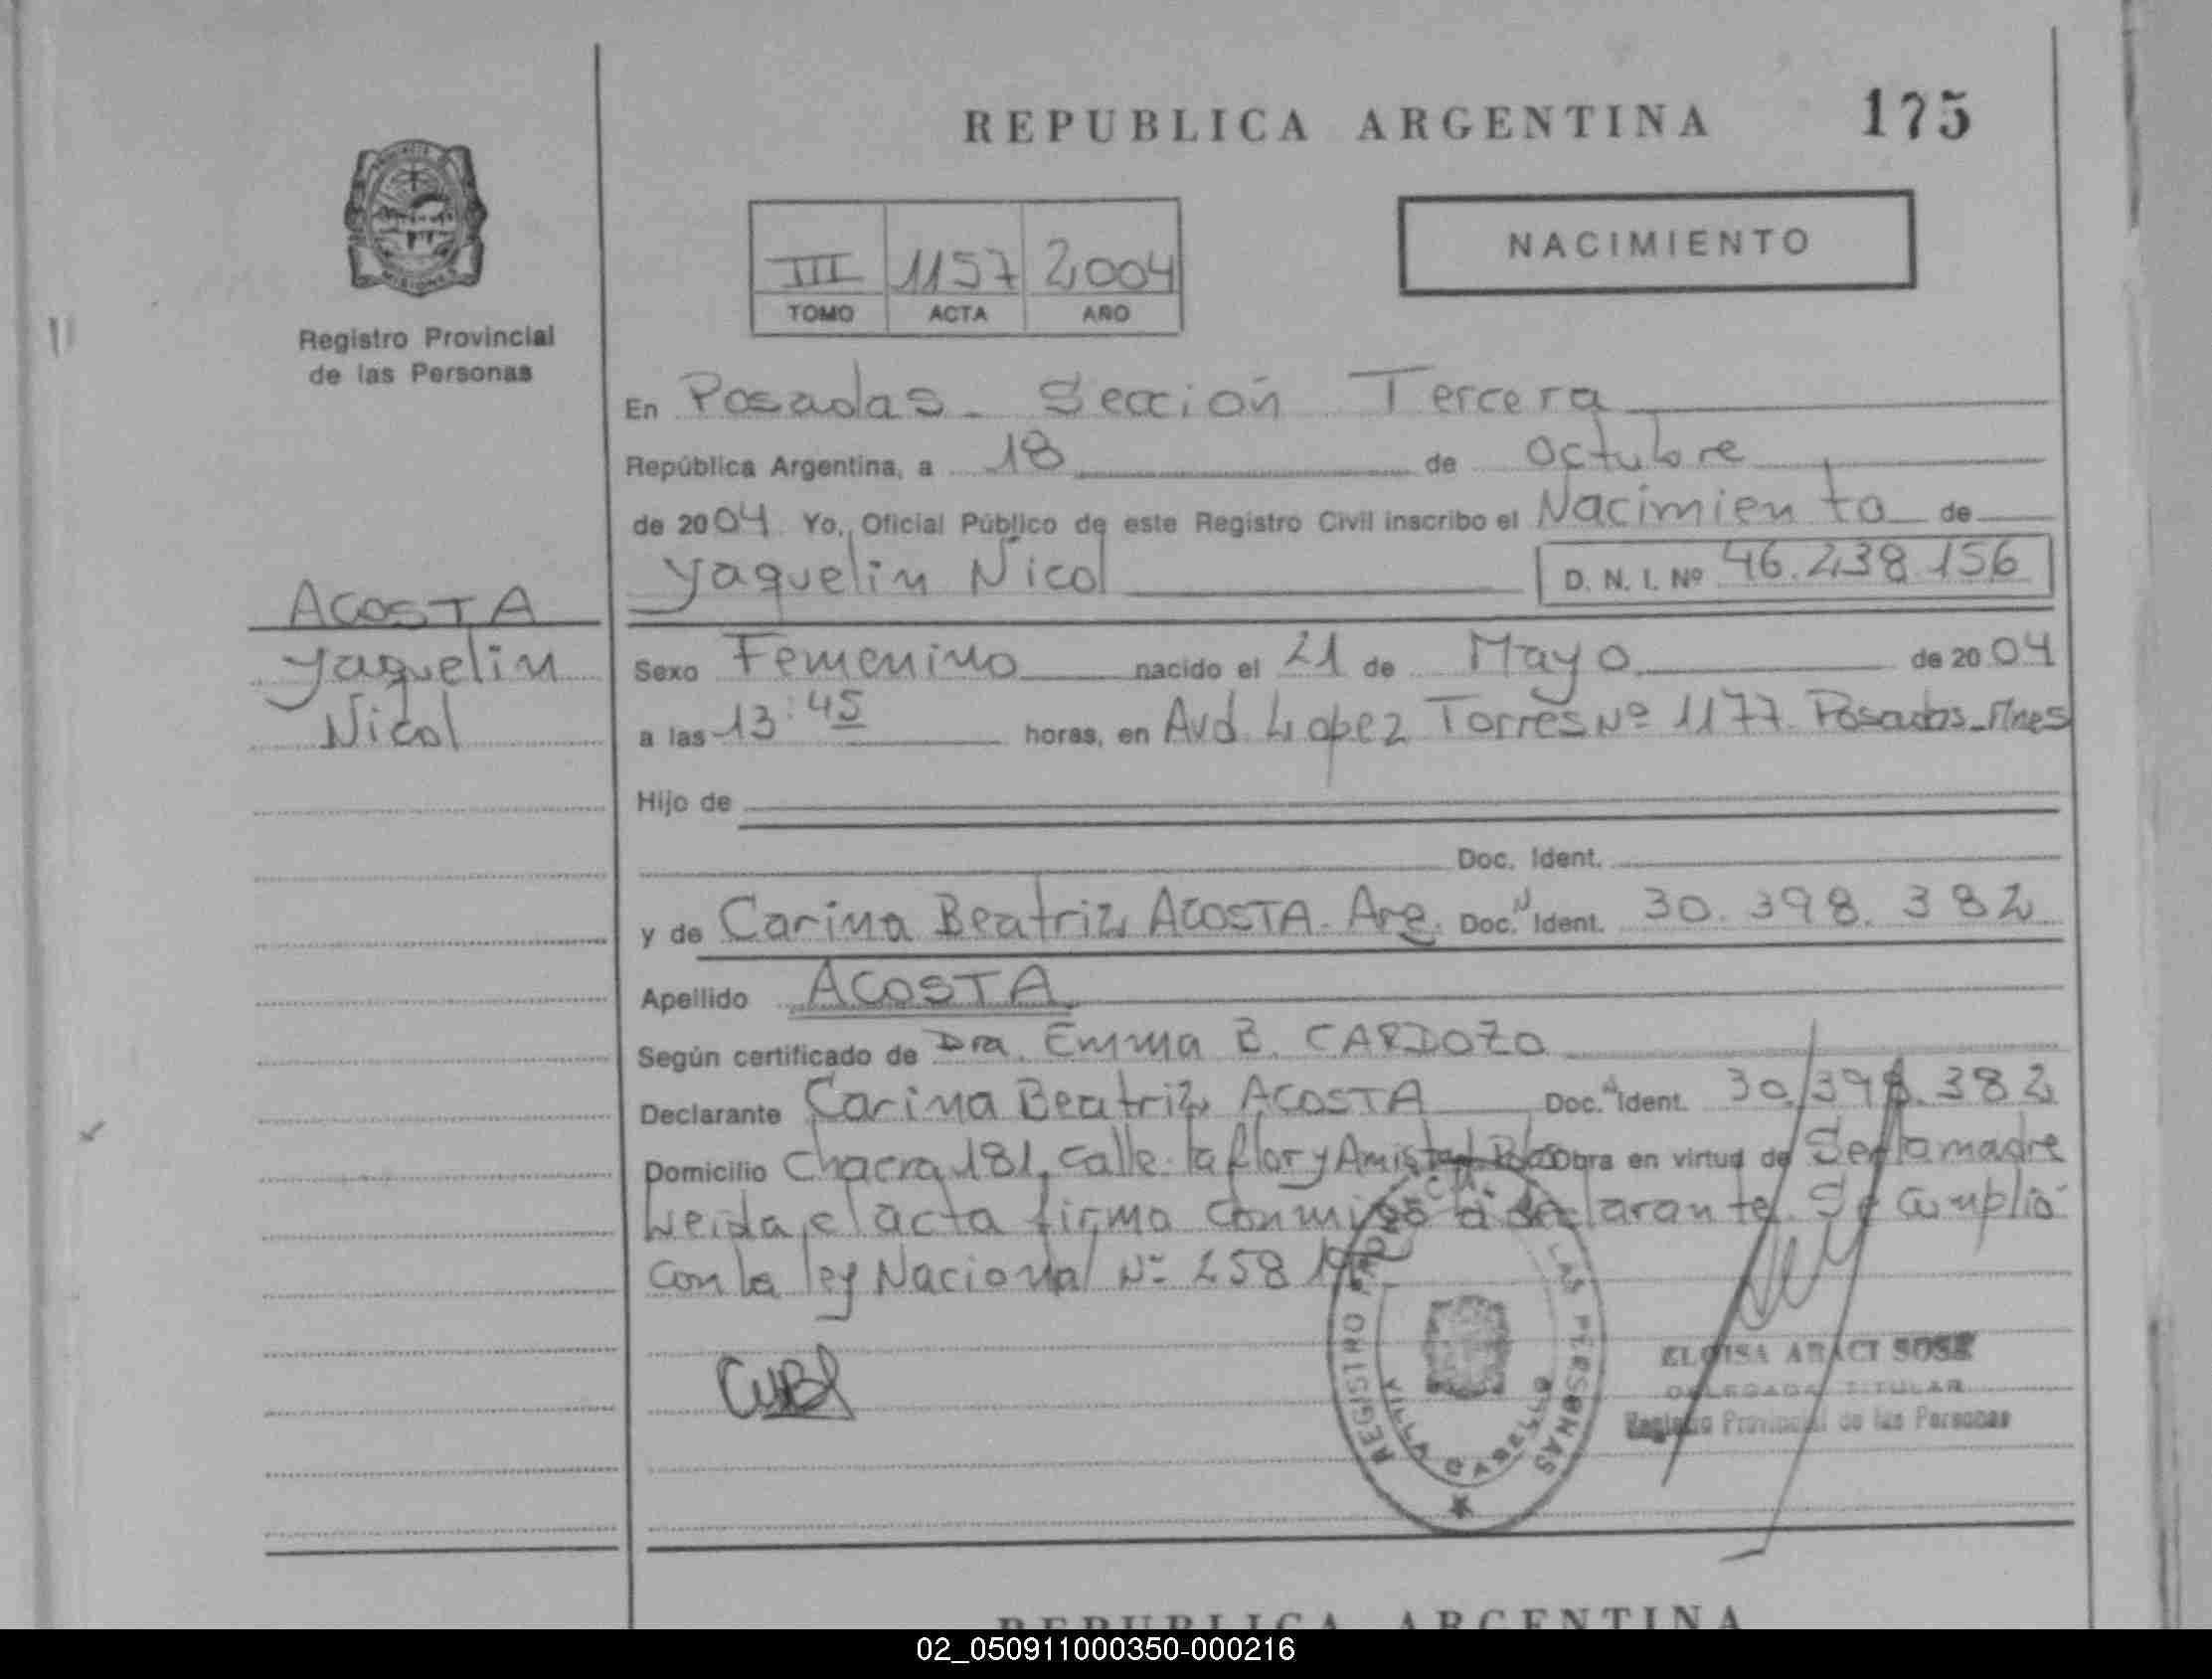 REPUBLICA ARGENTINA 175
NACIMIENTO
III 1157 2004
TOMO ACTA AÑO
MISIONES
Registro Provincial
de las Personas
En Posadas - Sección Tercera
República Argentina, a 18 de Octubre
de 2004 Yo, Oficial Público de este Registro Civil inscribo el Nacimiento de
Yaquelin Nicol D. N. I. Nº 46.238.156
ACOSTA
Yaquelin
Nicol
Sexo Femenino nacido el 21 de Mayo de 2004
a las 13:45 horas, en Avd. Lopez Torres Nº 1177. Posadas-Mnes
Hijo de
Doc. Ident.
y de Carina Beatriz ACOSTA. Arg. Doc. Ident. 30.398.382
Apellido ACOSTA
Según certificado de Dra. Emma B. CARDOZO
Declarante Carina Beatriz ACOSTA Doc. Ident. 30.398.382
Domicilio Chacra 181, Calle la flor y Amistad Obra en virtud de Ser la madre
Leida el acta firma conmigo la declarante. Se cumplió
con la ley Nacional Nº
REGISTRO LAS PERSONAS
VILLA CABELLO
ELOISA ARACI SOSA
DELEGADA TITULAR
Registro Provincial de las Personas
REPUBLICA ARGENTINA
02_050911000350-000216